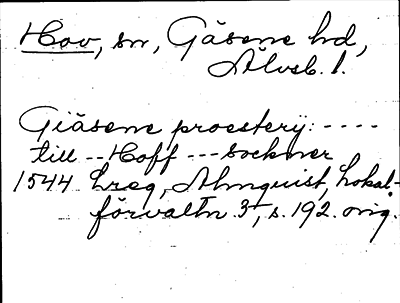 Hov, sn, Gäsene hd,
Älvsb. l.
Giäsene proestery: ----
till -- Hoff --- Sockner
1544 hreg, Almquist, Lokal-
förvaltn 3, s. 192. orig.